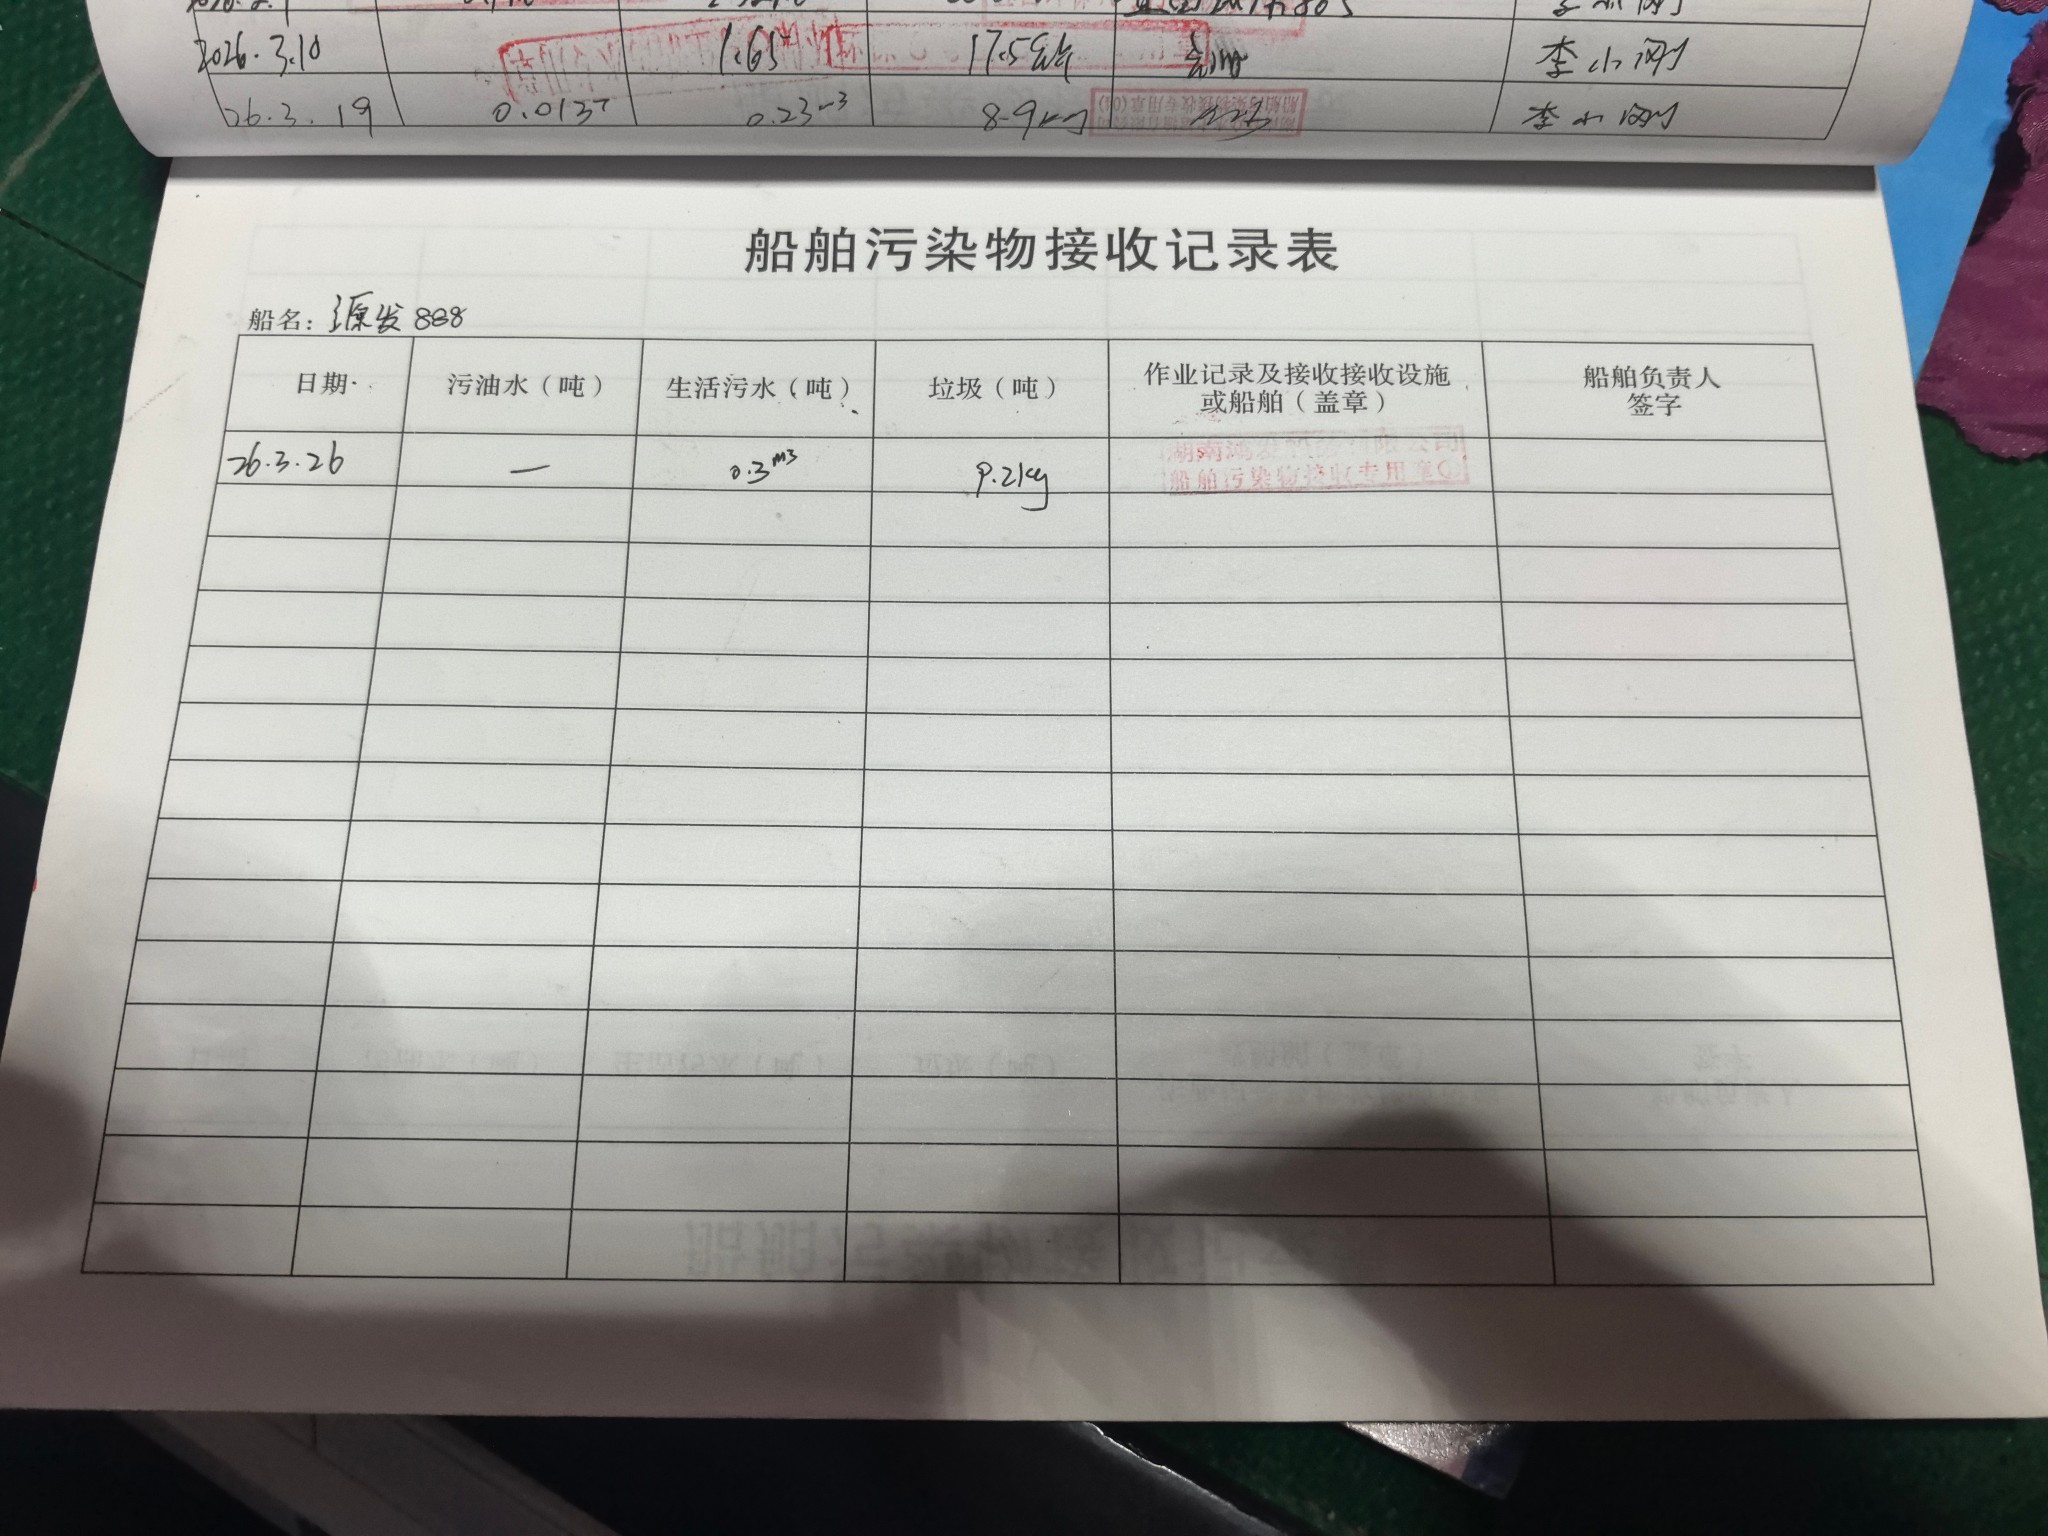 2026.3.10 1.65 17.5公斤 李小刚
26.3.19 0.013T 0.23m3 8.9kg 李小刚
船舶污染物接收记录表
船名：源发888
日期 污油水（吨） 生活污水（吨） 垃圾（吨） 作业记录及接收接收设施 船舶负责人
或船舶（盖章） 签字
26.3.26 — 0.3m3 9.2kg
湖南 有限公司
船舶污染物接收专用章